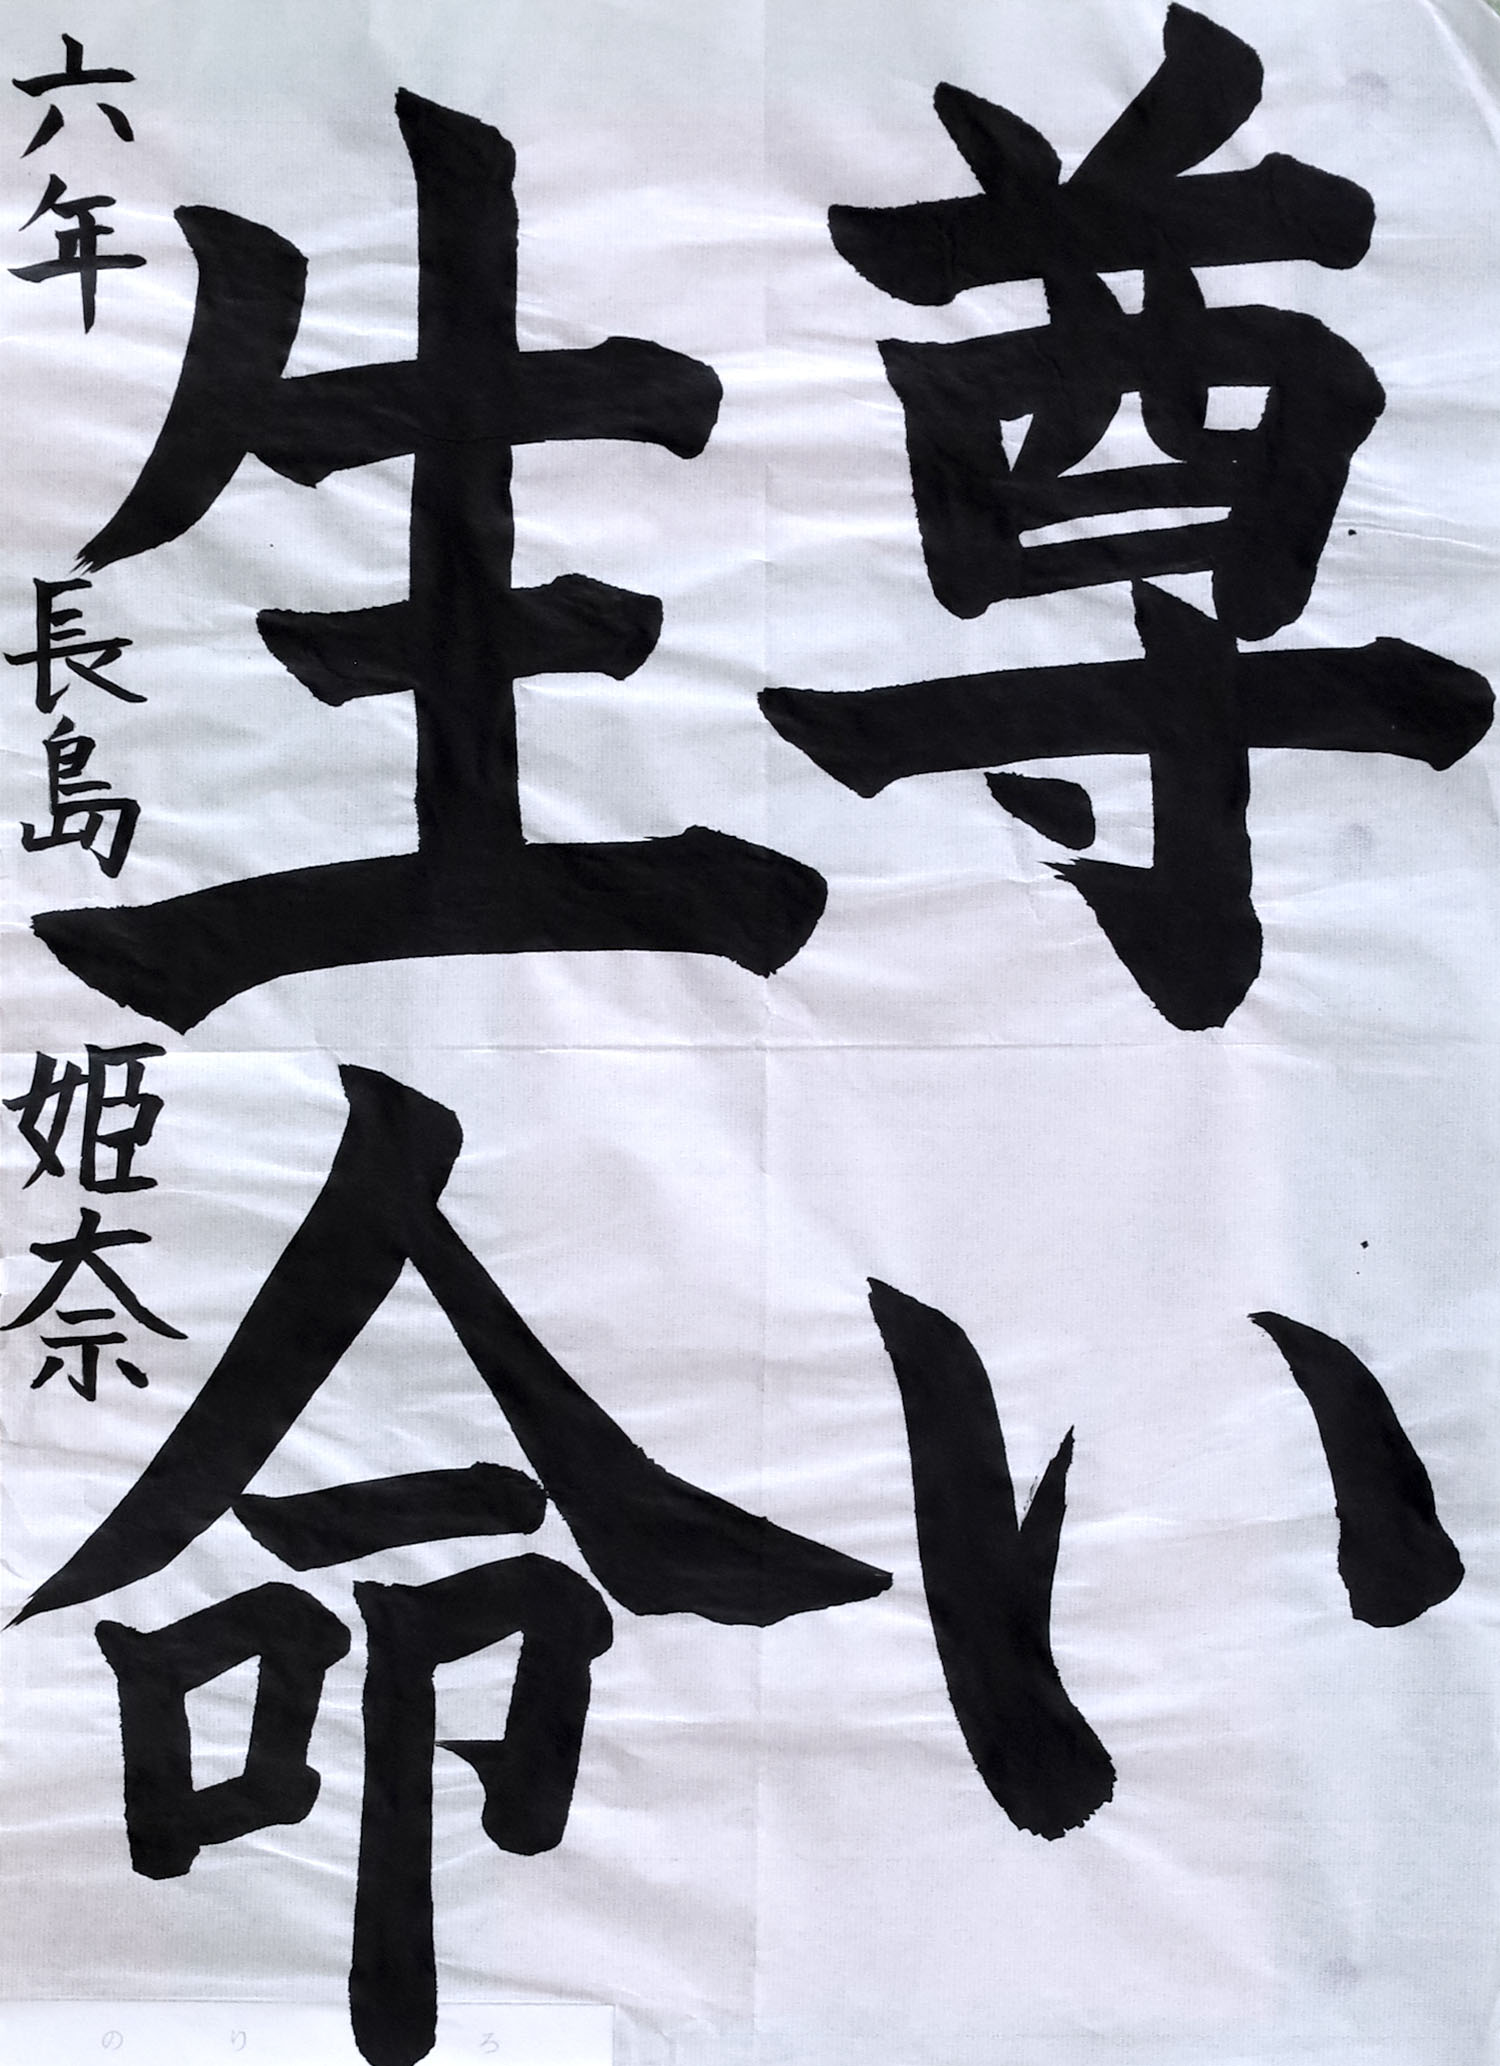 尊い
生命
六年 長島 姫奈
のりろ